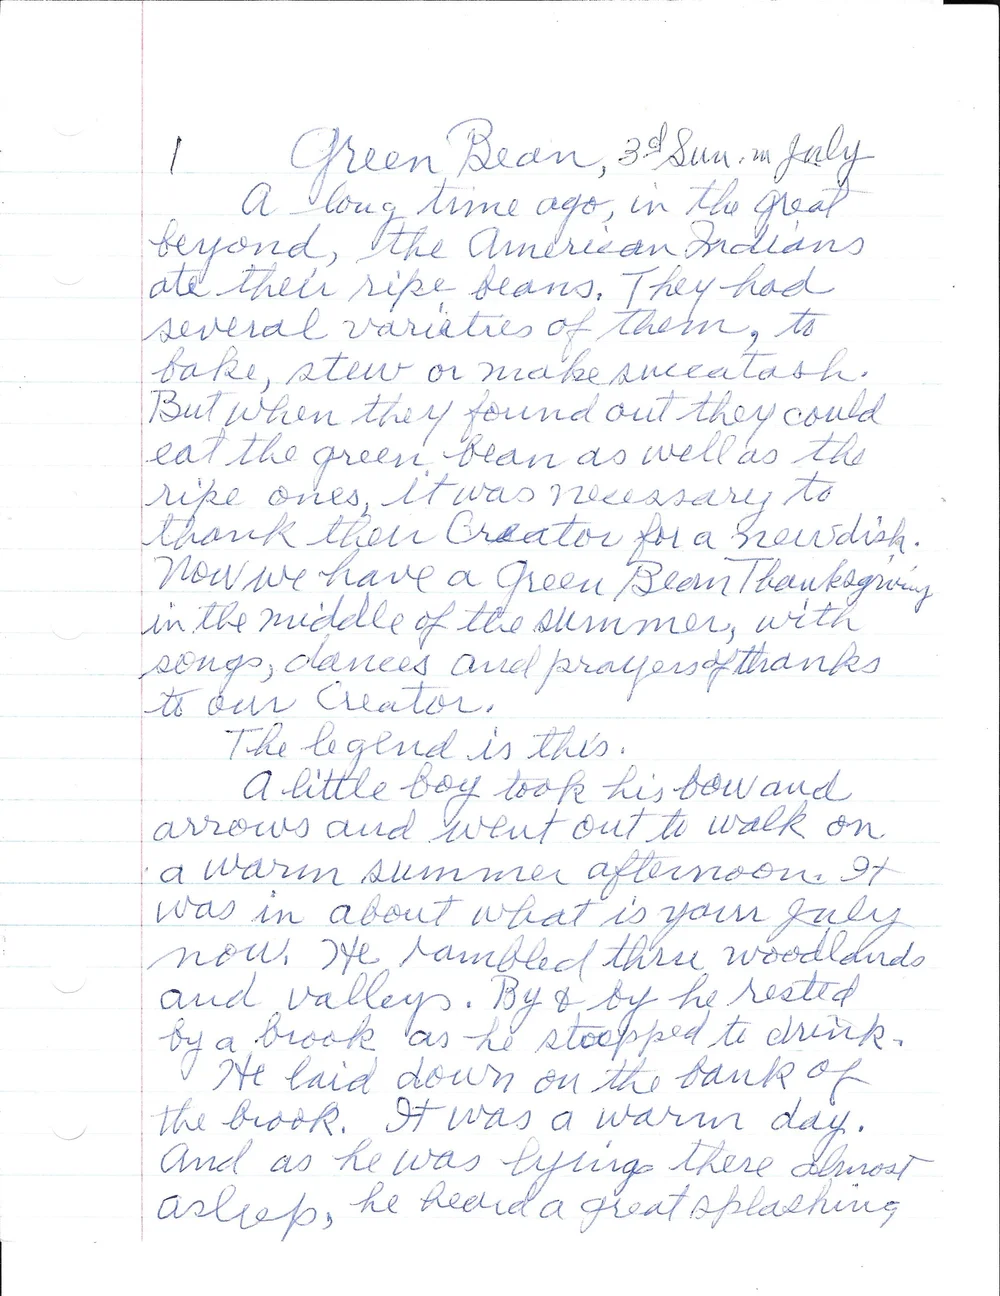 1 Green Bean, 3rd Sun. in July
A long time ago, in the great
beyond, the American Indians
ate their ripe beans. They had
several varieties of them, to
bake, stew or make succatash.
But when they found out they could
eat the green bean as well as the
ripe ones, it was necessary to
thank their Creator for a new dish.
Now we have a Green Bean Thanksgiving
in the middle of the summer, with
songs, dances and prayers of thanks
to our Creator.
The legend is this.
A little boy took his bow and
arrows and went out to walk on
a warm summer afternoon. It
was in about what is your July
now. He rambled thru woodlands
and valleys. By & by he rested
by a brook as he stopped to drink.
He laid down on the bank of
the brook. It was a warm day.
And as he was lying there almost
asleep, he heard a great splashing